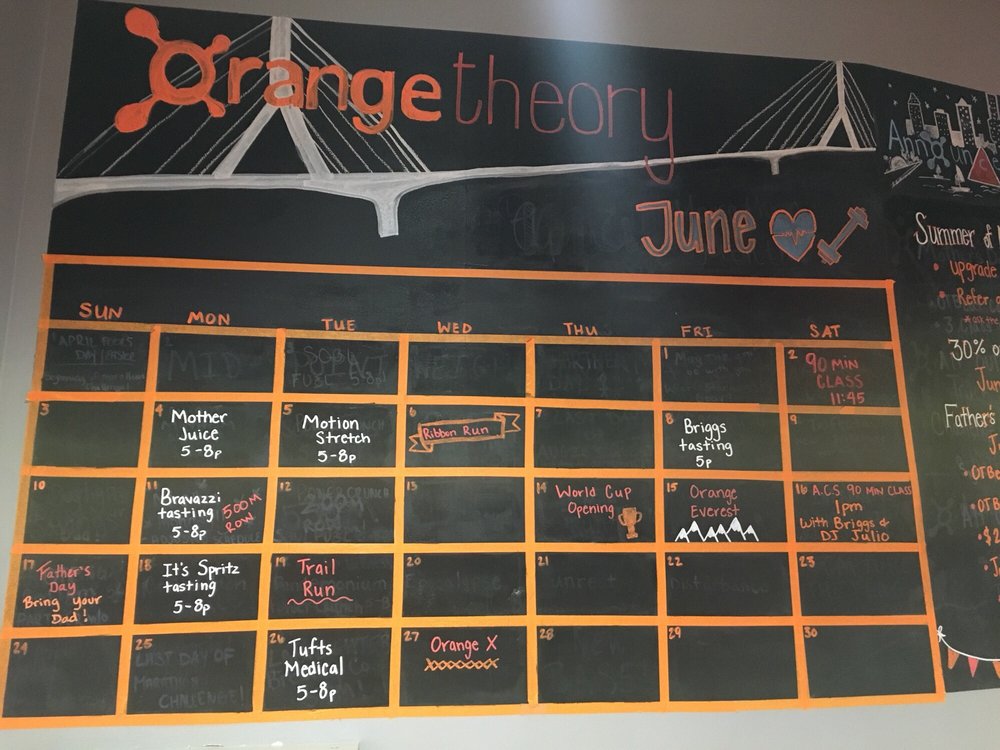 Orangetheory
June
SUN MON TUE WED THU FRI SAT
1
2 90 MIN
CLASS
11:45
3
4 Mother
Juice
5-8p
5 Motion
Stretch
5-8p
6
Ribbon Run
7
8 Briggs
tasting
5p
9
10
11 Bravazzi
tasting
5-8p
500M
ROW
12
13
14 World Cup
Opening
15 Orange
Everest
16 A.C.S 90 MIN CLASS
1pm
with Briggs &
DJ Julio
17 Father's
Day
Bring your
Dad!
18 It's Spritz
tasting
5-8p
19 Trail
Run
20
21
22
23
24
25
LAST DAY OF
CHALLENGE!
26 Tufts
Medical
5-8p
27 Orange X
XXXXXXXXX
28
29
30
Announc
Summer of
• upgrade
• Refer
*ask the
30% o
Jun
Father's
• OTBe
• OTB
• $2